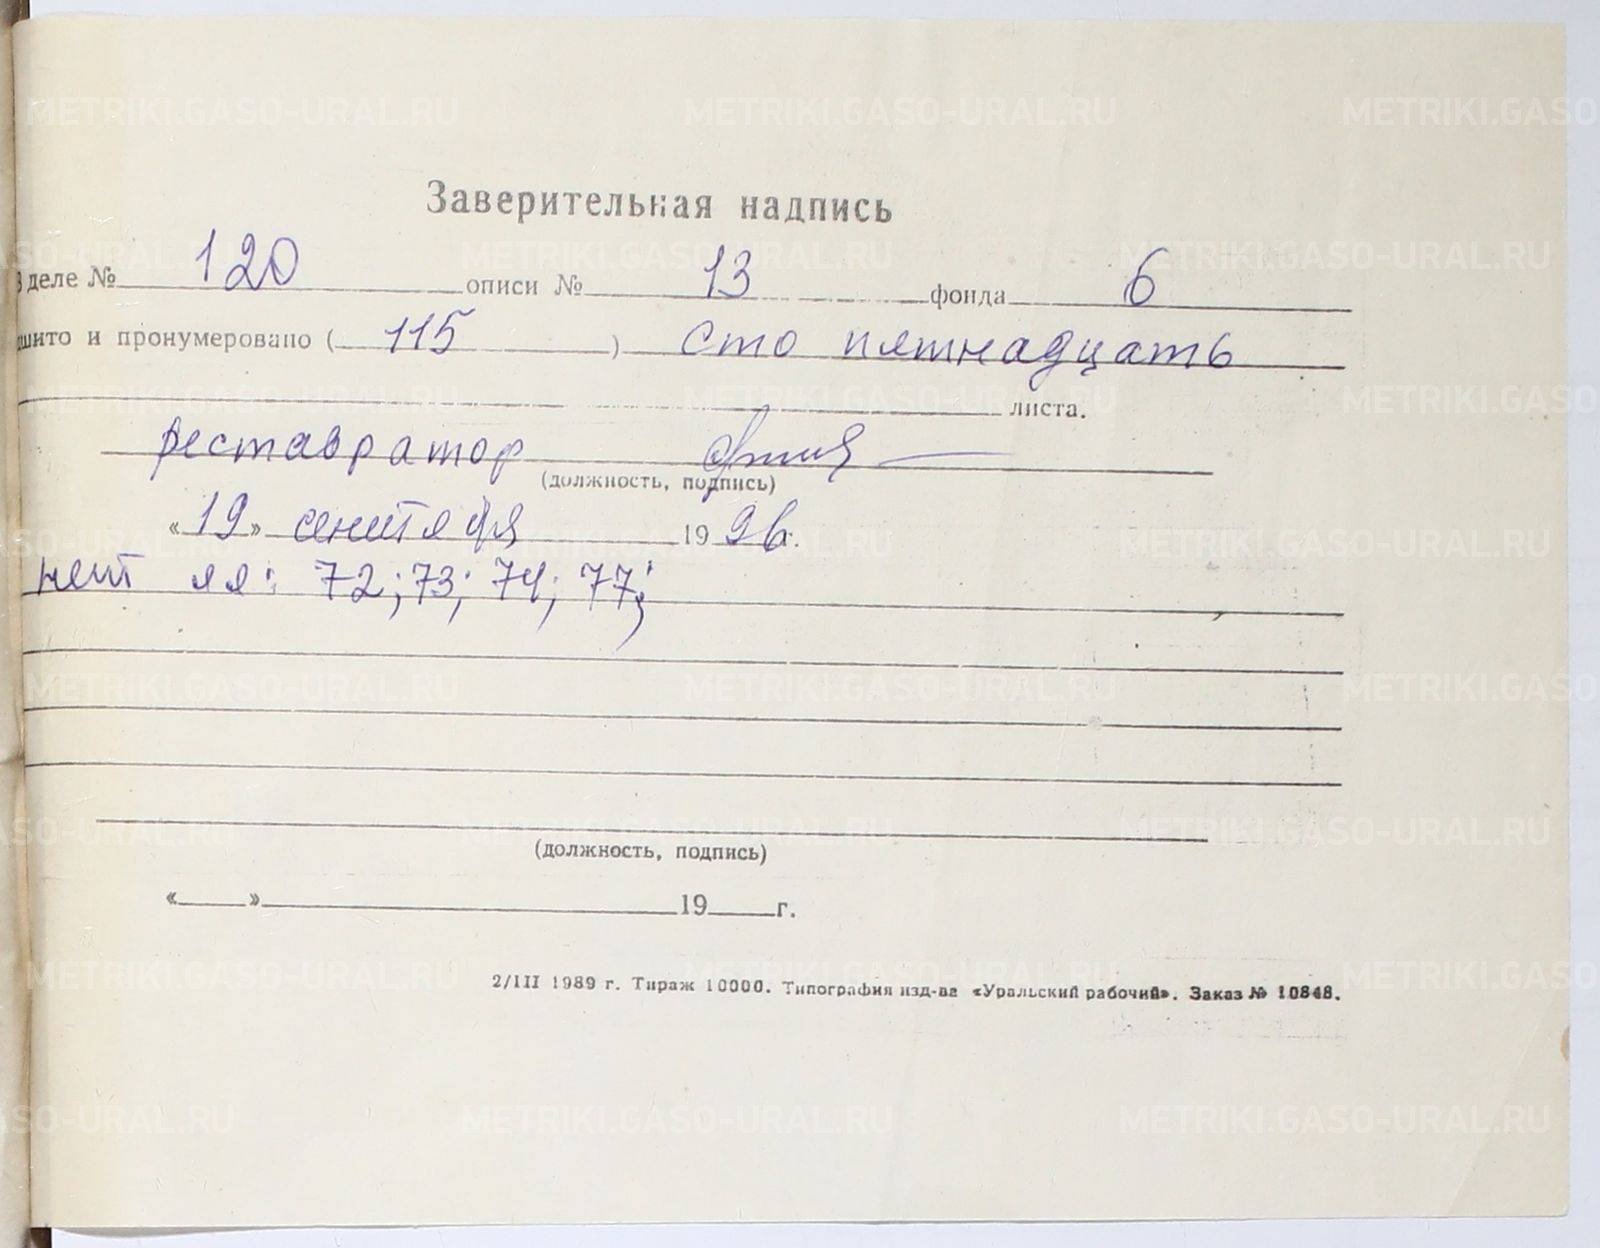 METRIKI.GASO-URAL.RU METRIKI.GASO-URAL.RU METRIKI.GASO
Заверительная надпись
В деле № 120 описи № 13 фонда 6
шито и пронумеровано ( 115 ) сто пятнадцать
листа.
реставратор
(должность, подпись)
«19» сентября 1996г.
нет лл: 72; 73; 74; 77;
(должность, подпись)
«    »    19    г.
2/III 1989 г. Тираж 10000. Типография изд-ва «Уральский рабочий». Заказ № 10848.